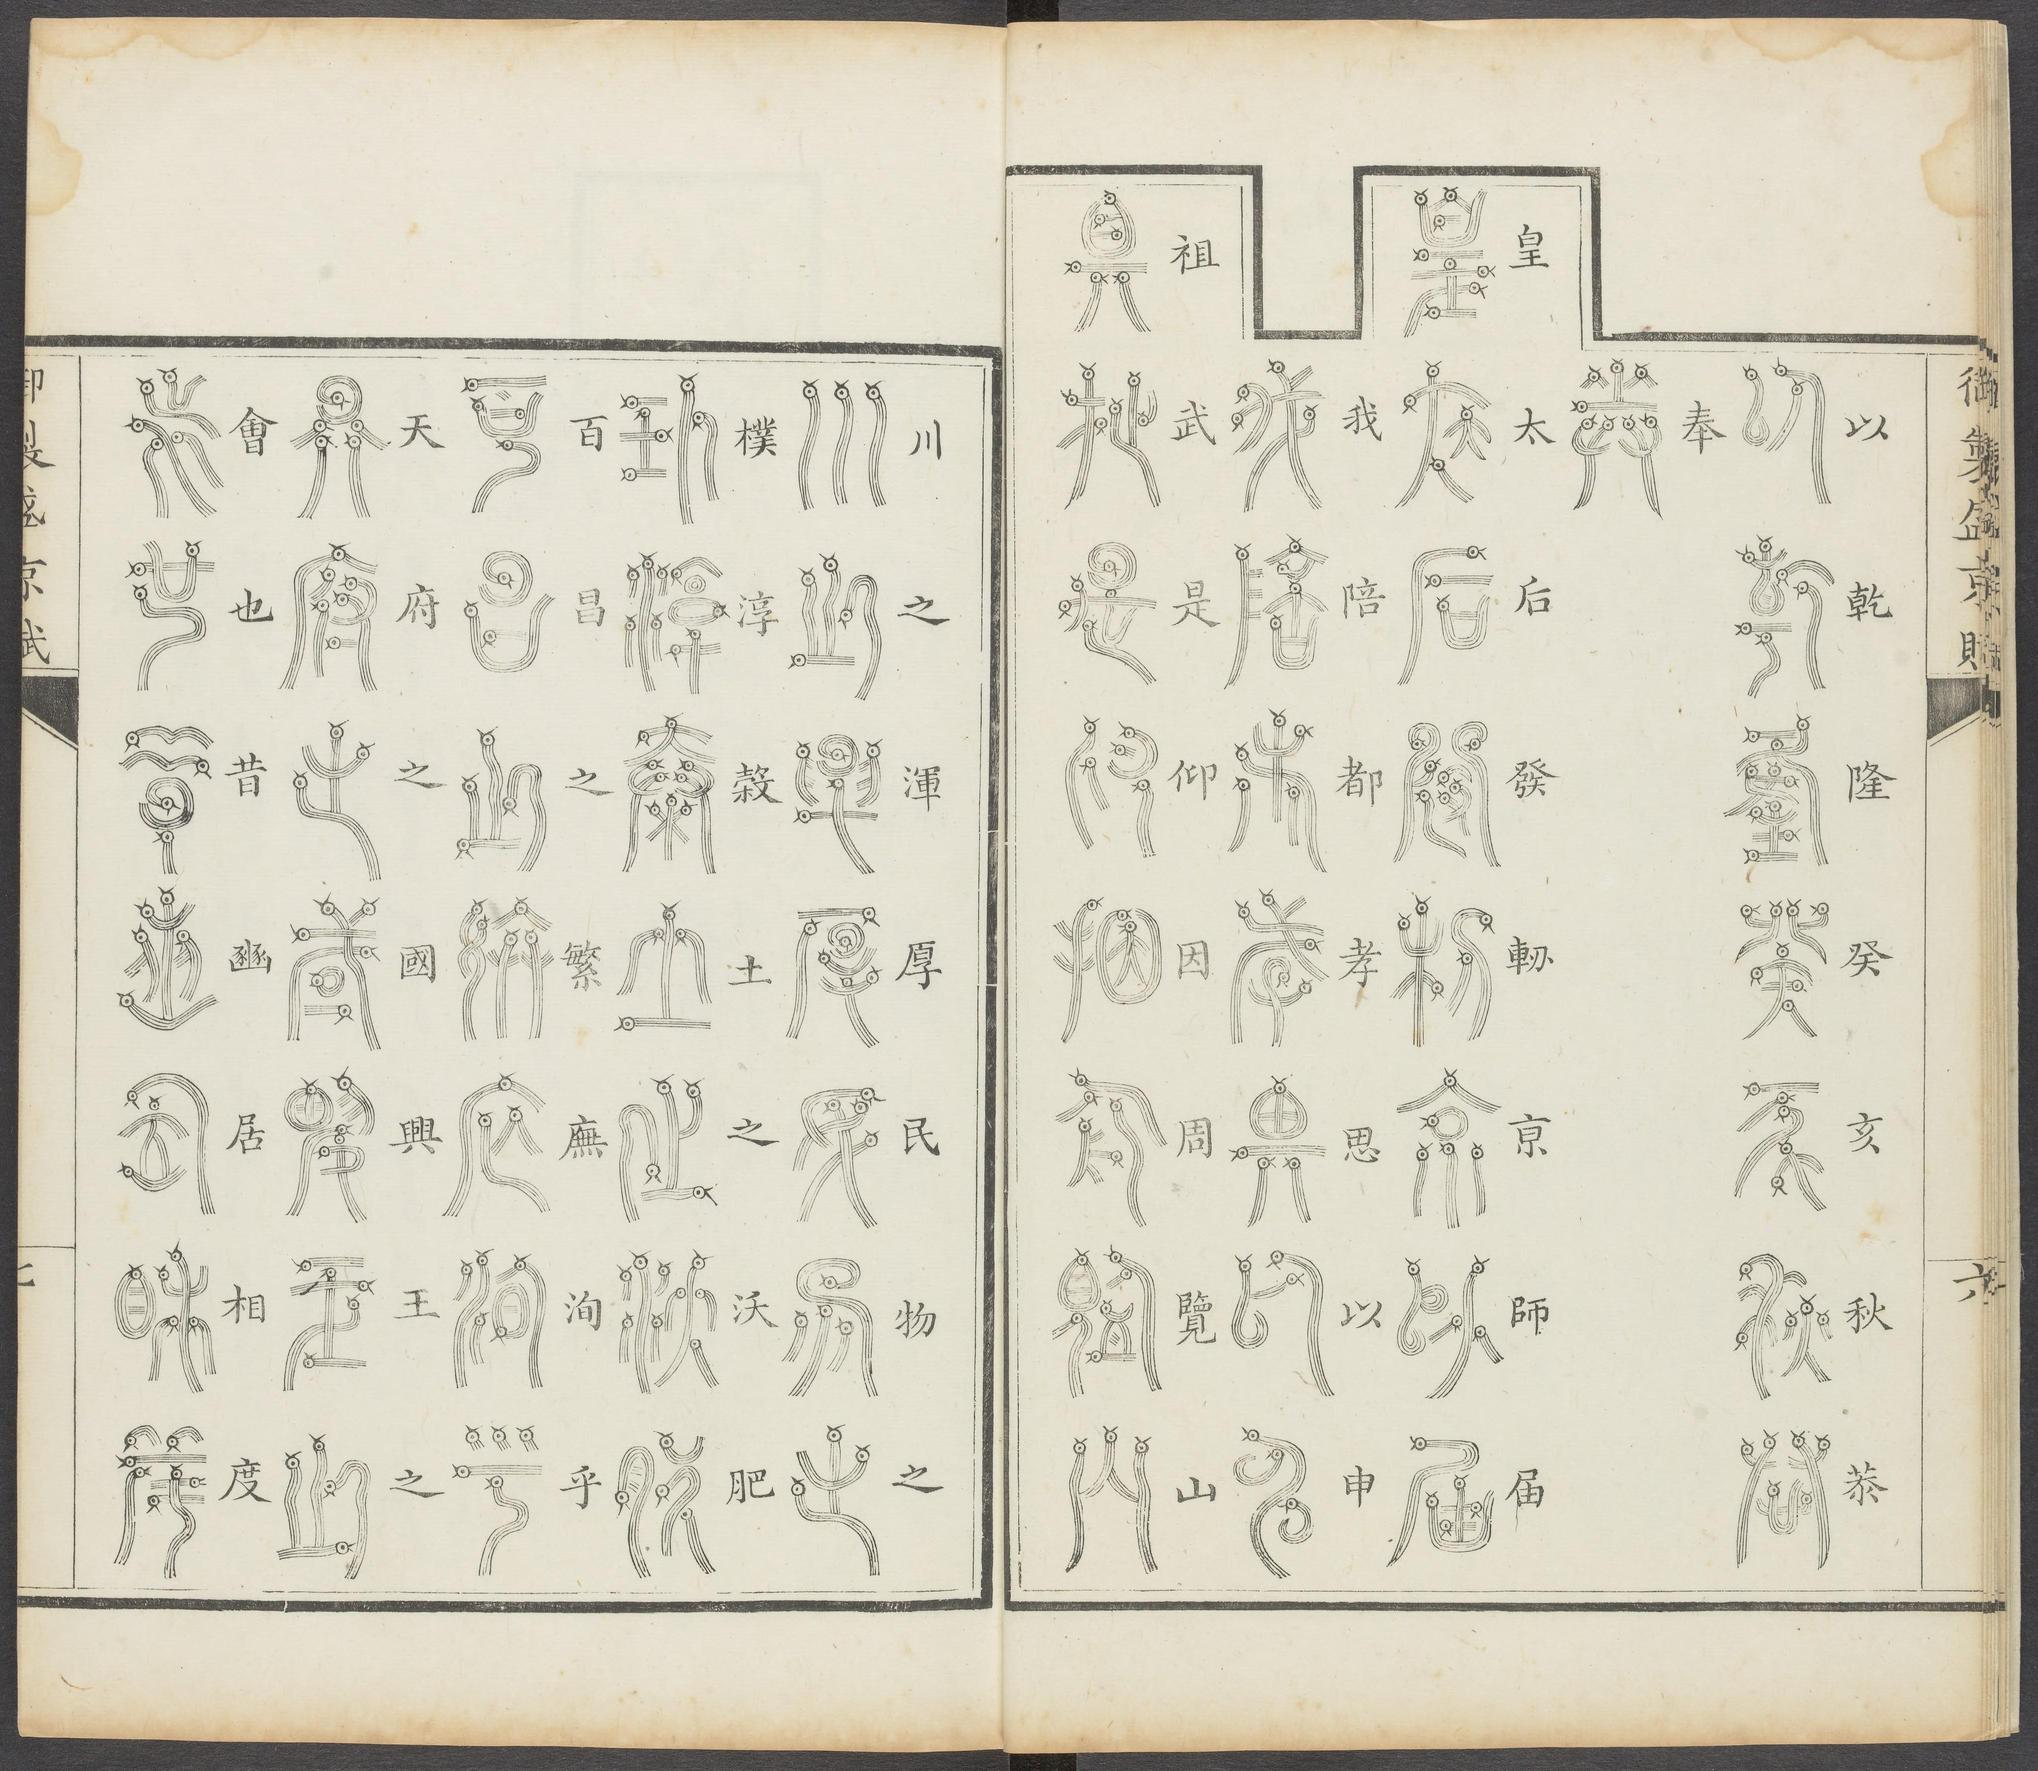 御製盛京賦
六
以乾隆癸亥秋恭
奉
皇太后發軔京師屆
我陪都孝思以申
祖武是仰因周覽山
川之渾厚民物之
樸淳穀土之沃肥
百昌之繁廡洵乎
天府之國興王之
會也昔豳居相度
御製盛京賦